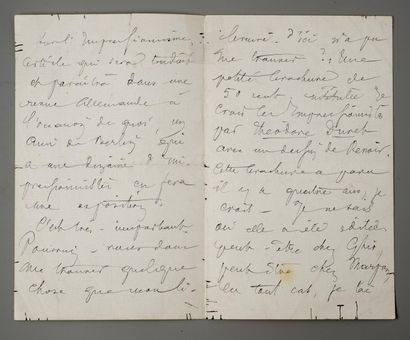 sur l'Impressionnisme,
article qui sera traduit
et paraîtra dans une
revue Allemande à
l'occasion de quoi, un
ami de Berlin, qui
a une dizaine d'im-
pressionnistes en fera
une exposition.
C'est très important.
Pourriez-vous donc
me trouver quelque
chose que mon li-
d'ici n'a pu
me trouver ? : Une
petite brochure de
50 cent. intitulée Je
crois les Impressionnistes
par Théodore Duret
avec un dessin de Renoir.
Cette brochure a paru
il y a quatre ans, je
crois — Je ne sais
où elle a été éditée
peut-être chez
peut-être chez Marpon
en tout cas, je l'ai